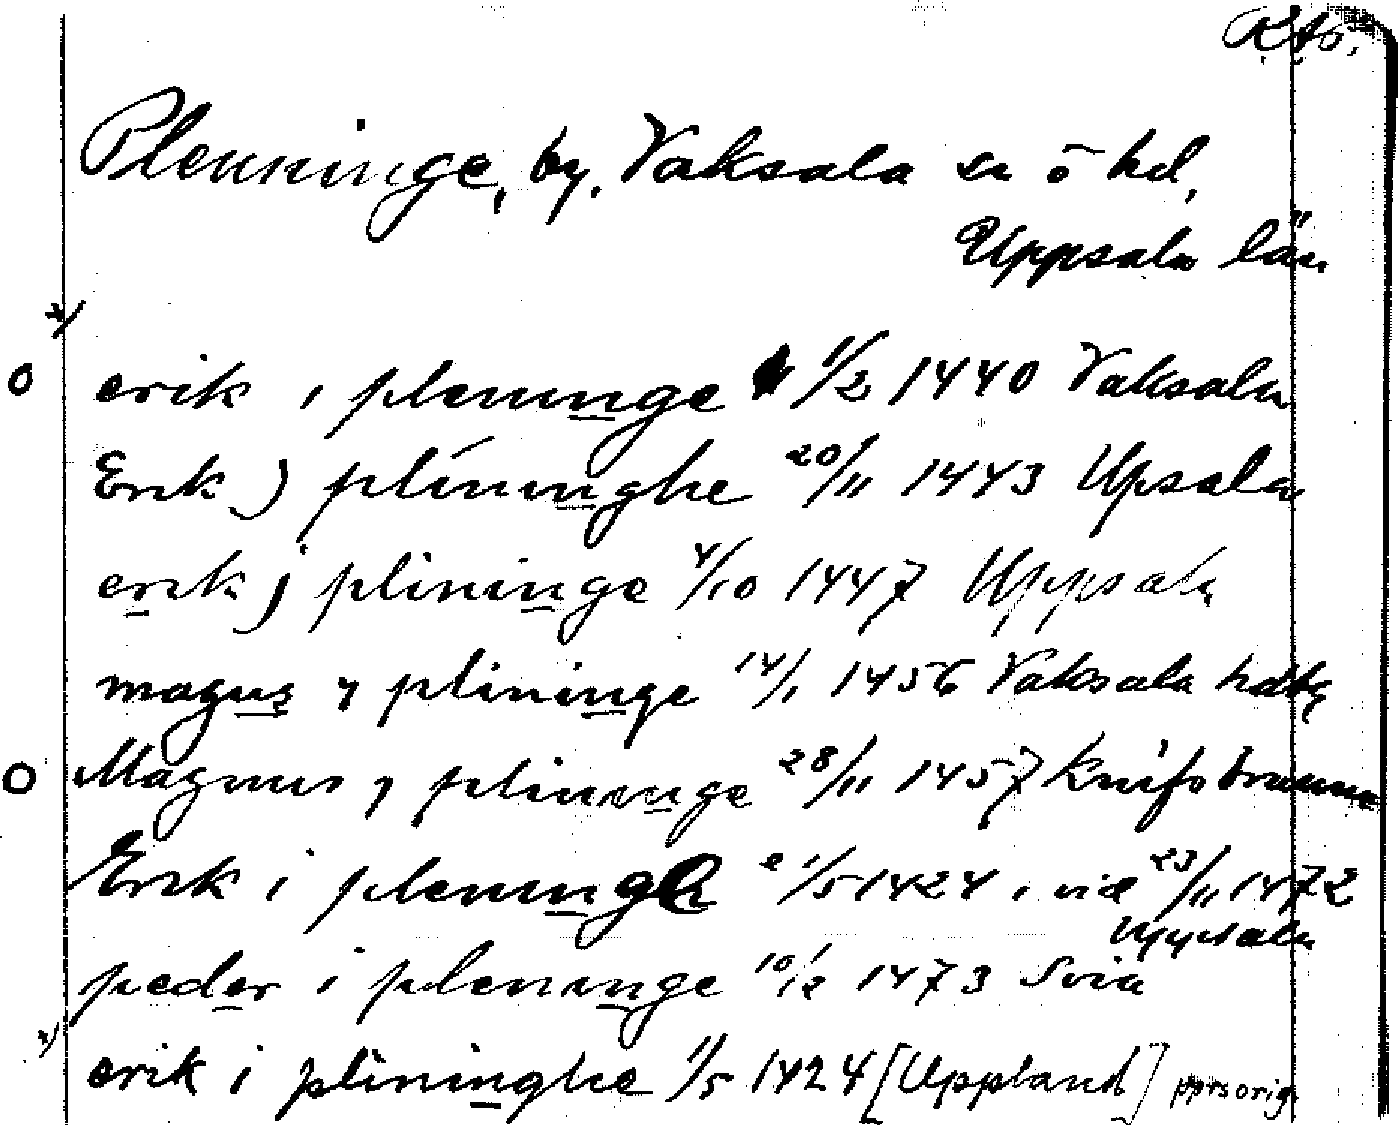 RAä.
Plenninge, by, Vaksala sn ō hd,
Uppsala län
x/
erik i pleninge 1/2 1440 Vaksala
Erik j plíninghe 20/11 1443 Upsala
erik j plininge 4/10 1447 Uppsala
magnus y plininge 14/1 1456 Vaksala hdtg
Magnus y plininge 28/11 1457 Knifsbrunne
Erik i pleninge 1/5 1424, vid 23/11 1472
Uppsala
peder i pleninge 10/12 1473 Svia
x/
erik i plininghe 1/5 1424 [Uppland] pprsorig